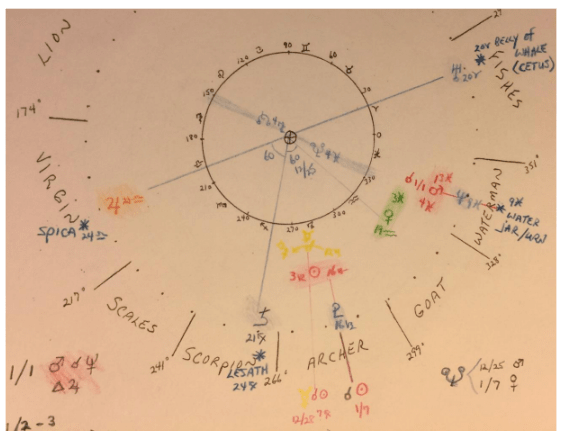 LION
27
20♈ BELLY of
WHALE
(CETUS)
FISHES
♅
20♈
90
60
120
30
150
174°
180
0
VIRGIN
351°
210
330
240
270
300
60
60
♂ 1/1
13♓
4♓
3♓
♀
19♒
9♓
WATER
JAR/URN
WATERMAN
328°
♃ 22♎
SPICA * 24♎
3♑ ☉ 16♑
217°
SCALES
241°
SCORPION
21♐
LESATH
24♐
266°
ARCHER
♇
GOAT
299°
1/1 ♂ ☌ ♆
△ ♃
12/25 7♑
☌ ☉
1/7
♆ 12/25 ♂
1/7 ♀
1/2-3